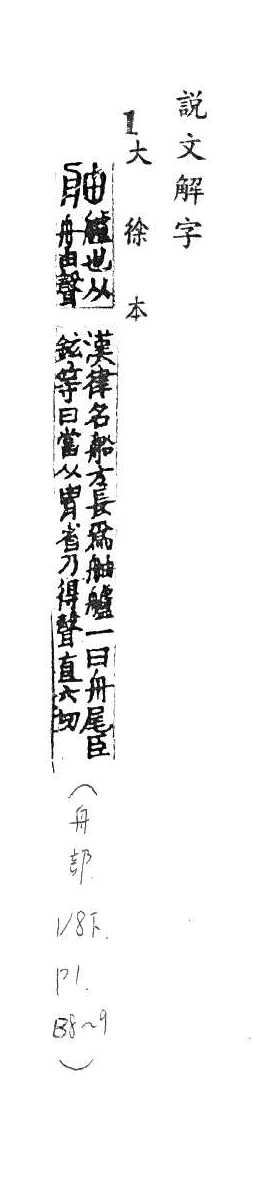 説文解字
1大徐本
舳艫也从舟由聲漢律名船方長爲舳艫一曰舟尾臣鉉等曰當从冑省乃得聲直六切
(舟部
1/8下.
P1.
B8~9
)